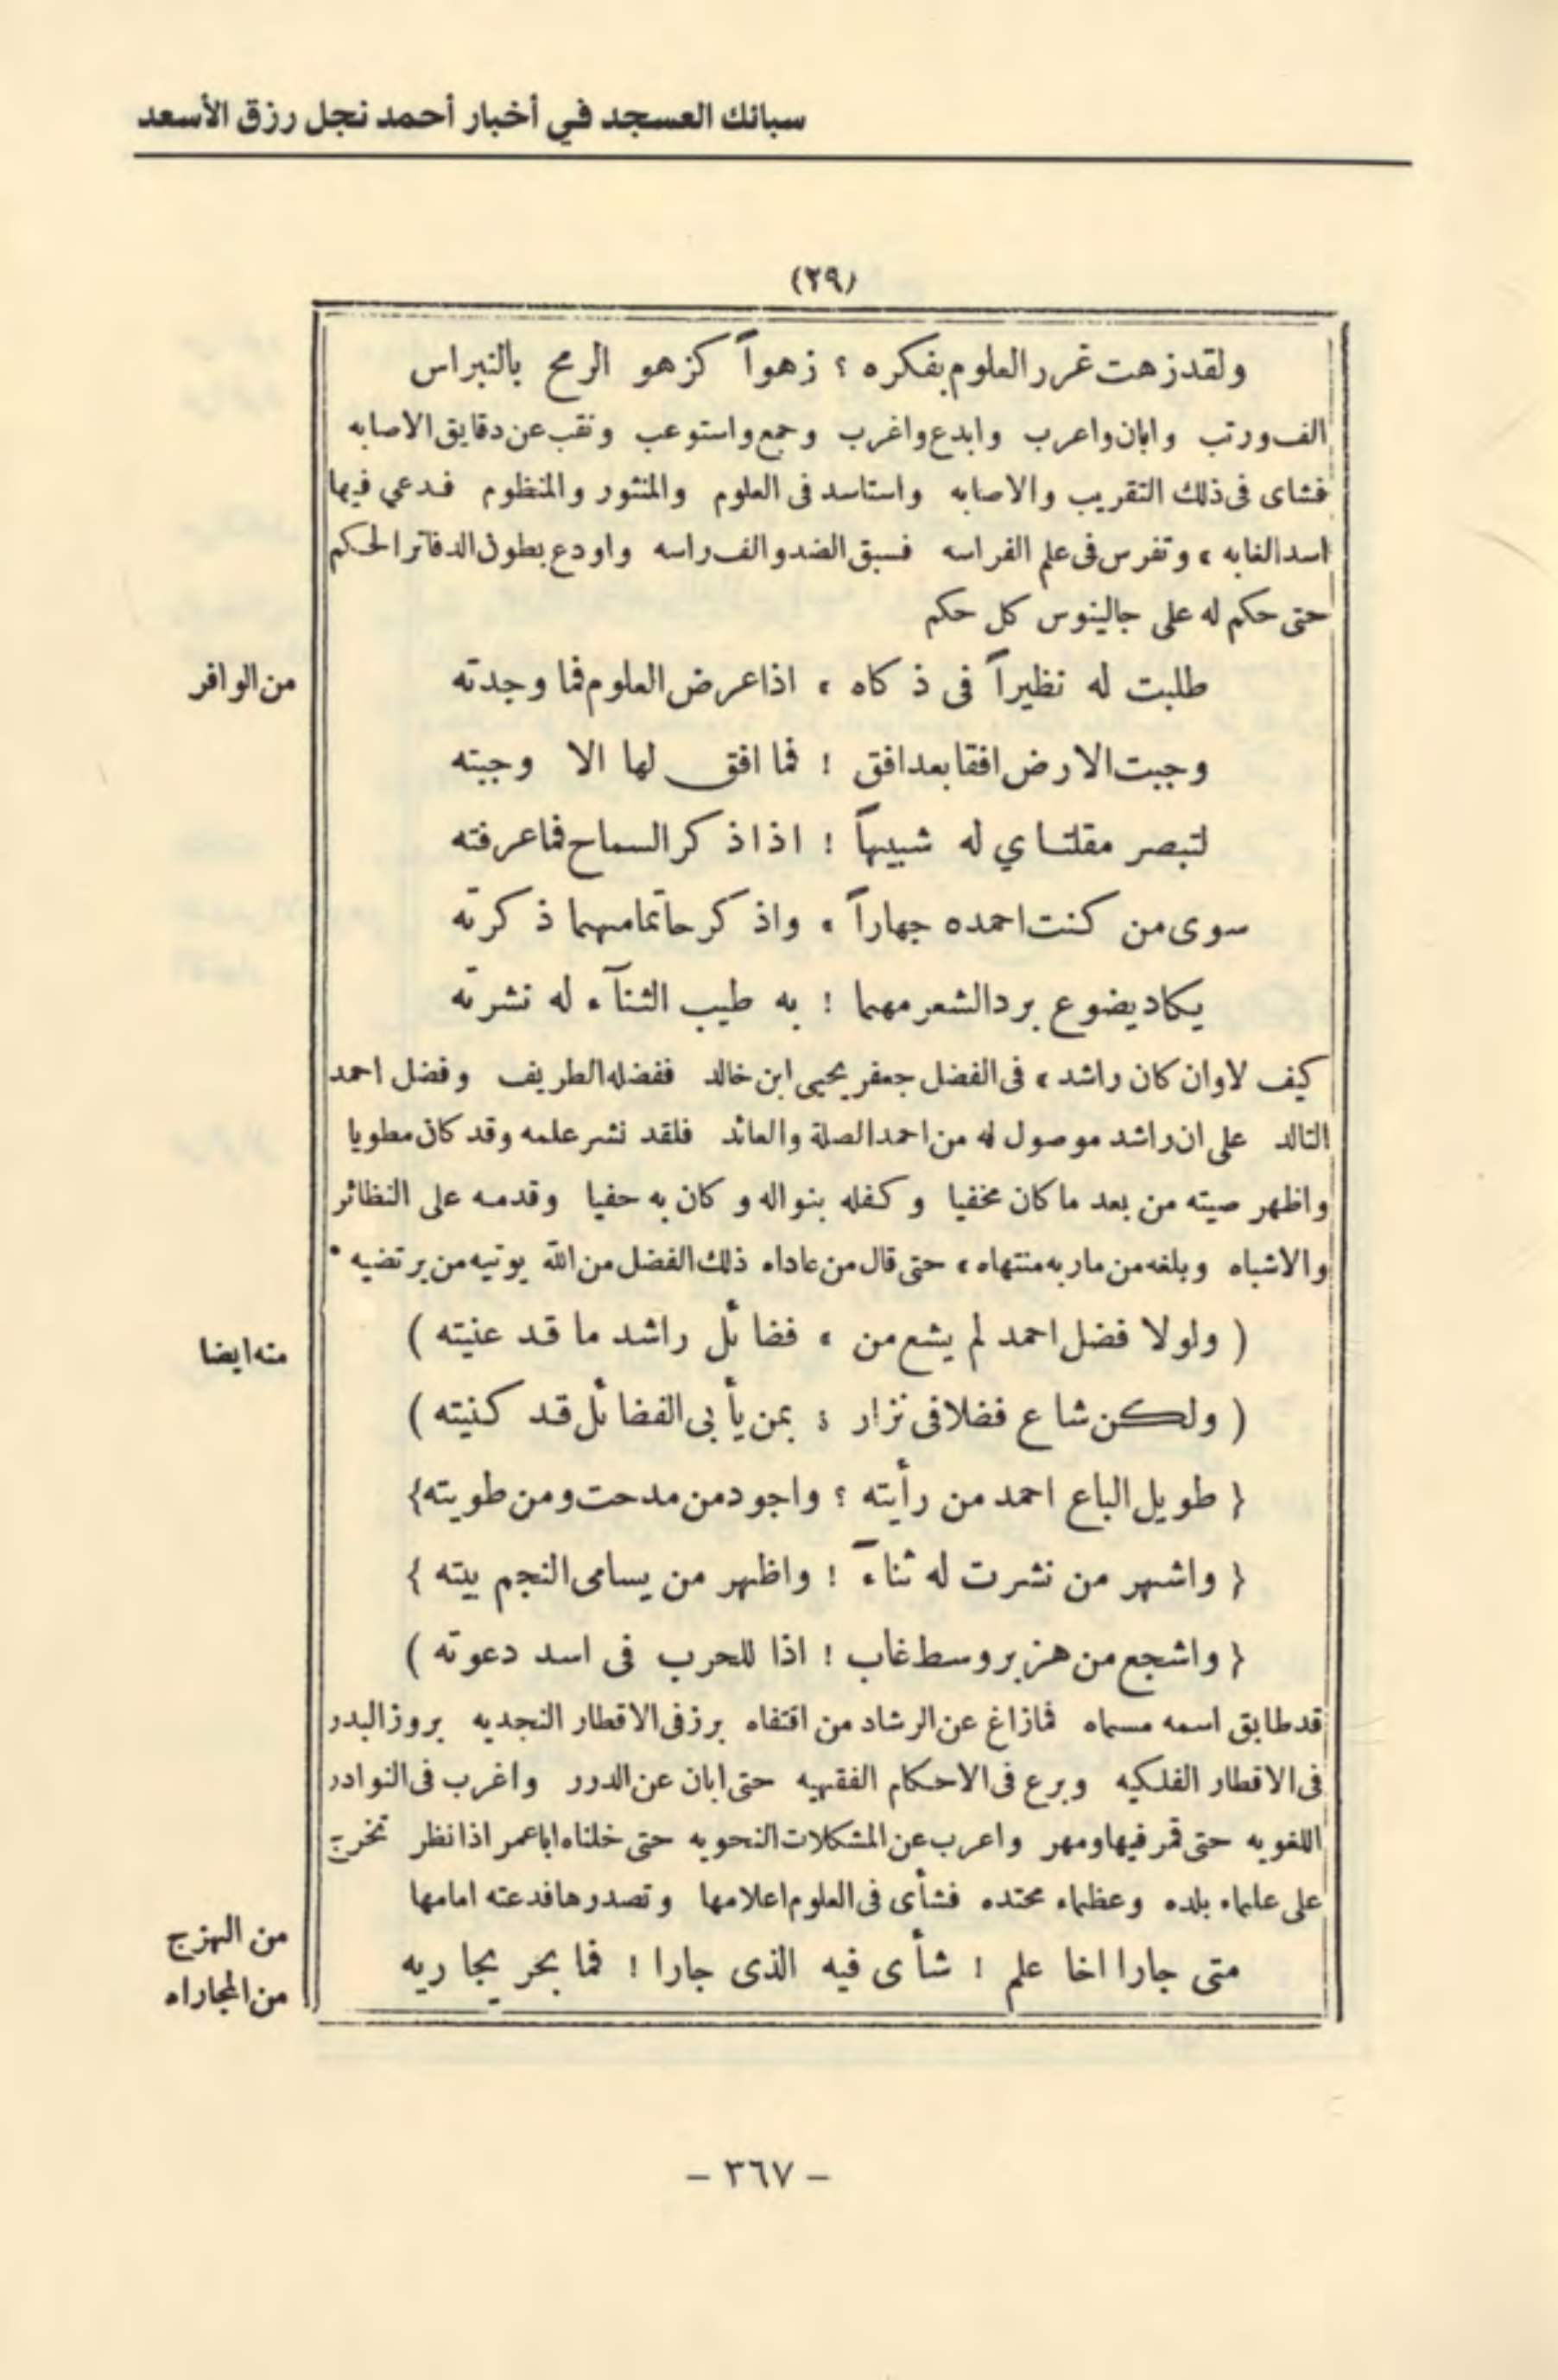 سبائك العسجد في أخبار أحمد نجل رزق الأسعد
(٢٩)
ولقد زهت غرر العلوم بفكره ؟ زهواً كزهو الرمح بالنبراس
الف ورتب وابان واعرب وابدع واغرب وجمع واستوعب ونقب عن دقايق الاصابه
فشاى فى ذلك التقريب والاصابه واستاسد فى العلوم والمنثور والمنظوم فدعي فيها
اسد الغابه ، وتفرس فى علم الفراسه فسبق الضد والف راسه واودع بطون الدفاتر الحكم
حتى حكم له على جالينوس كل حكم
من الوافر
طلبت له نظيراً فى ذكاه ، اذا عرض العلوم فما وجدته
وجبت الارض افقا بعد افق ! فما افق لها الا وجبته
لتبصر مقلتاي له شبيهاً ! اذا ذكر السماح فما عرفته
سوى من كنت احمده جهاراً ، واذكر حاتما مهما ذكرته
يكاد يضوع برد الشعر مهما ! به طيب الثنآء له نشرته
كيف لا وان كان راشد ، فى الفضل جعفر يحيى ابن خالد ففضله الطريف وفضل احمد
التالد على ان راشد موصول له من احمد الصلة والعائد فلقد نشر علمه وقد كان مطويا
واظهر صيته من بعد ما كان مخفيا وكفله بنواله وكان به حفيا وقدمه على النظائر
والاشباه وبلغه من ماربه منتهاه ، حتى قال من عاداه ذلك الفضل من الله يوتيه من يرتضيه *
منه ايضا
( ولولا فضل احمد لم يشع من ، فضائل راشد ما قد عنيته )
( ولكن شاع فضلا فى نزار ؛ بمن يأبى الفضائل قد كنيته )
{ طويل الباع احمد من رأيته ؟ واجود من مدحت ومن طويته }
{ واشهر من نشرت له ثنآء ! واظهر من يسامى النجم بيته }
{ واشجع من هزبر وسط غاب ! اذا للحرب فى اسد دعوته )
قد طابق اسمه مسماه فما زاغ عن الرشاد من اقتفاه برز فى الاقطار النجديه بروز البدر
فى الاقطار الفلكيه وبرع فى الاحكام الفقهيه حتى ابان عن الدرر واغرب فى النوادر
اللغويه حتى قمر فيها ومهر واعرب عن المشكلات النحويه حتى خلناه ابا عمر اذا نظر تخرج
على علماء بلده وعظماء محتده فشأى فى العلوم اعلامها وتصدرها فدعته امامها
من الهزج
من المجاراه
متى جارا اخا علم ! شأى فيه الذى جارا ! فما بحر يجاريه
- ٣٦٧ -